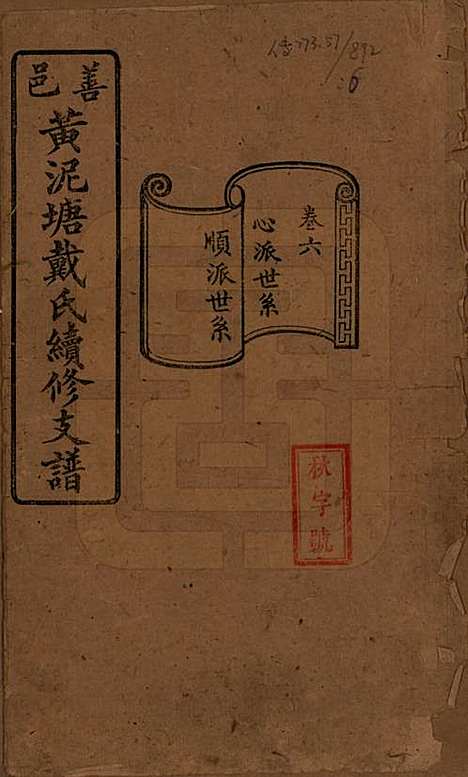 善邑
黃泥塘戴氏續修支譜
卷六
心派世系
順派世系
秋字號
773.57/892
:6